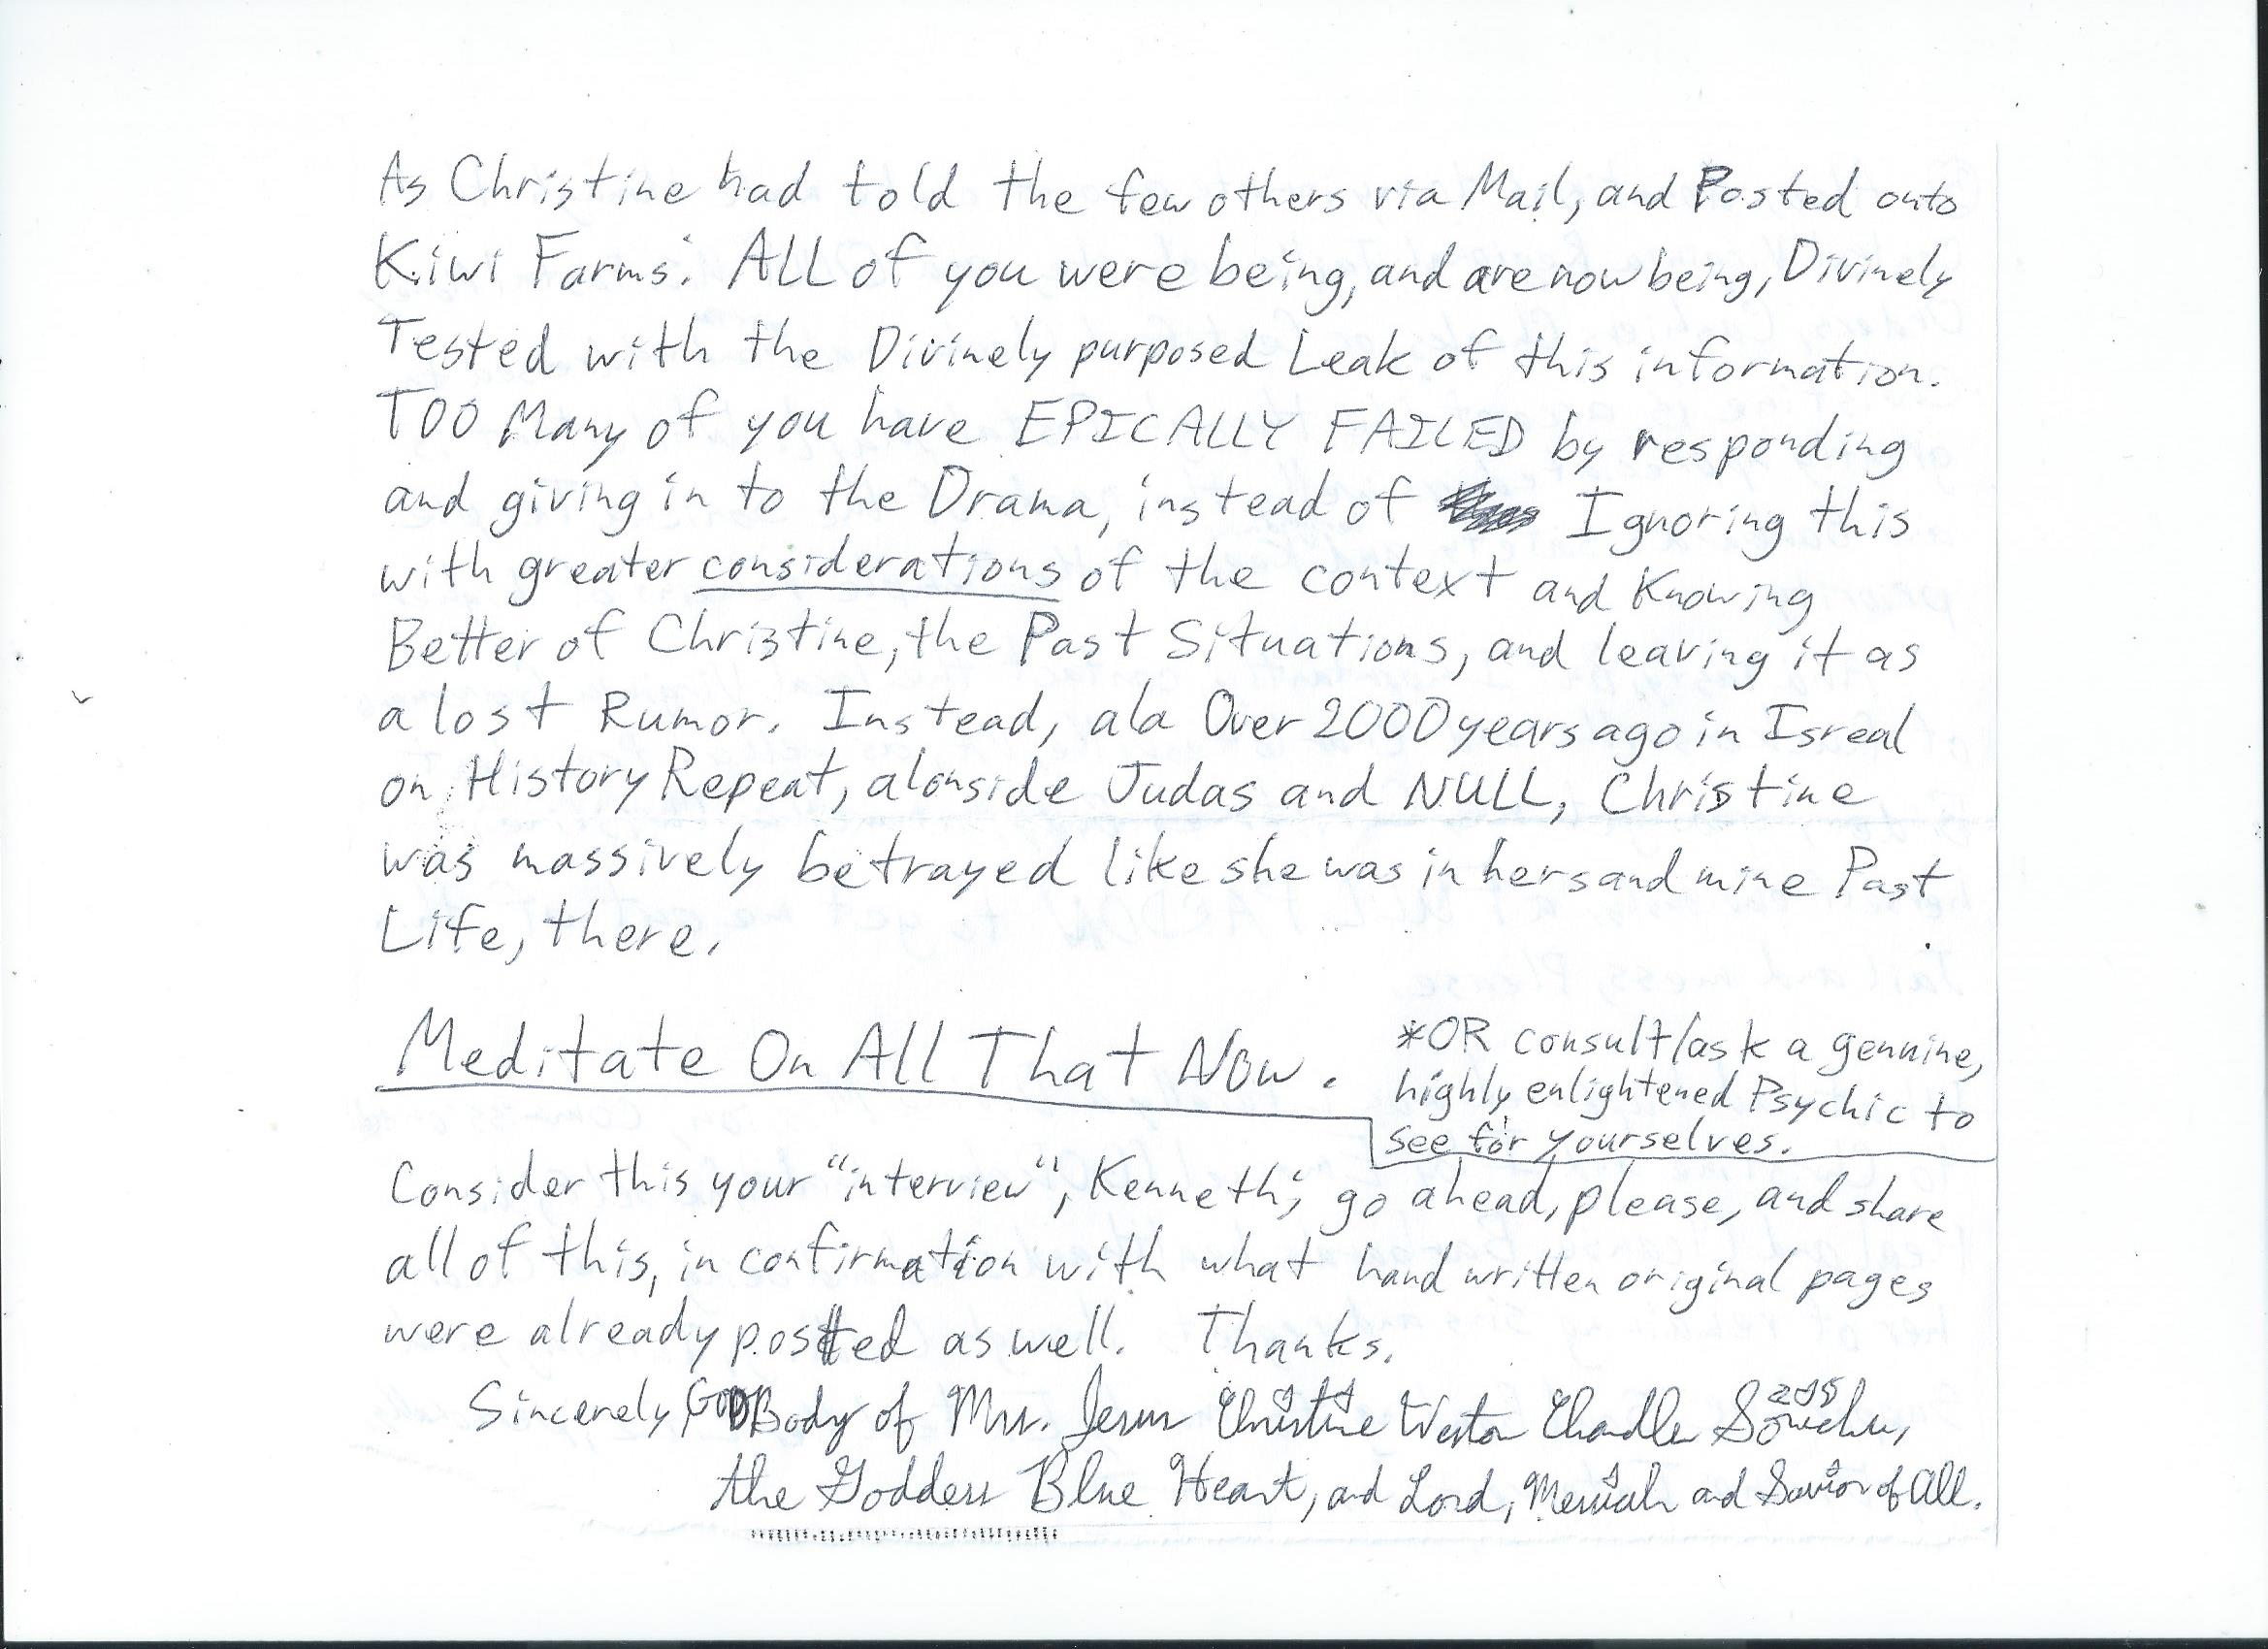 As Christine had told the few others via Mail, and Posted onto
Kiwi Farms: ALL of you were being, and are now being, Divinely
Tested with the Divinely purposed Leak of this information.
TOO Many of you have EPICALLY FAILED by responding
and giving in to the Drama, instead of Ignoring this
with greater considerations of the context and Knowing
Better of Christine, the Past Situations, and leaving it as
a lost Rumor. Instead, ala Over 2000 years ago in Isreal
on History Repeat, alonside Judas and NULL, Christine
was massively betrayed like she was in hers and mine Past
Life, there.
Meditate On All That Now.
*OR consult/ask a genuine,
highly enlightened Psychic to
see for yourselves.
Consider this your "interview", Kenneth; go ahead, please, and share
all of this, in confirmation with what hand written original pages
were already posted as well. Thanks.
Sincerely, GOD Body of Mrs. Jesus Christine Weston Chandler Sonichu,
the Goddess Blue Heart, and Lord, Messiah and Savior of All.